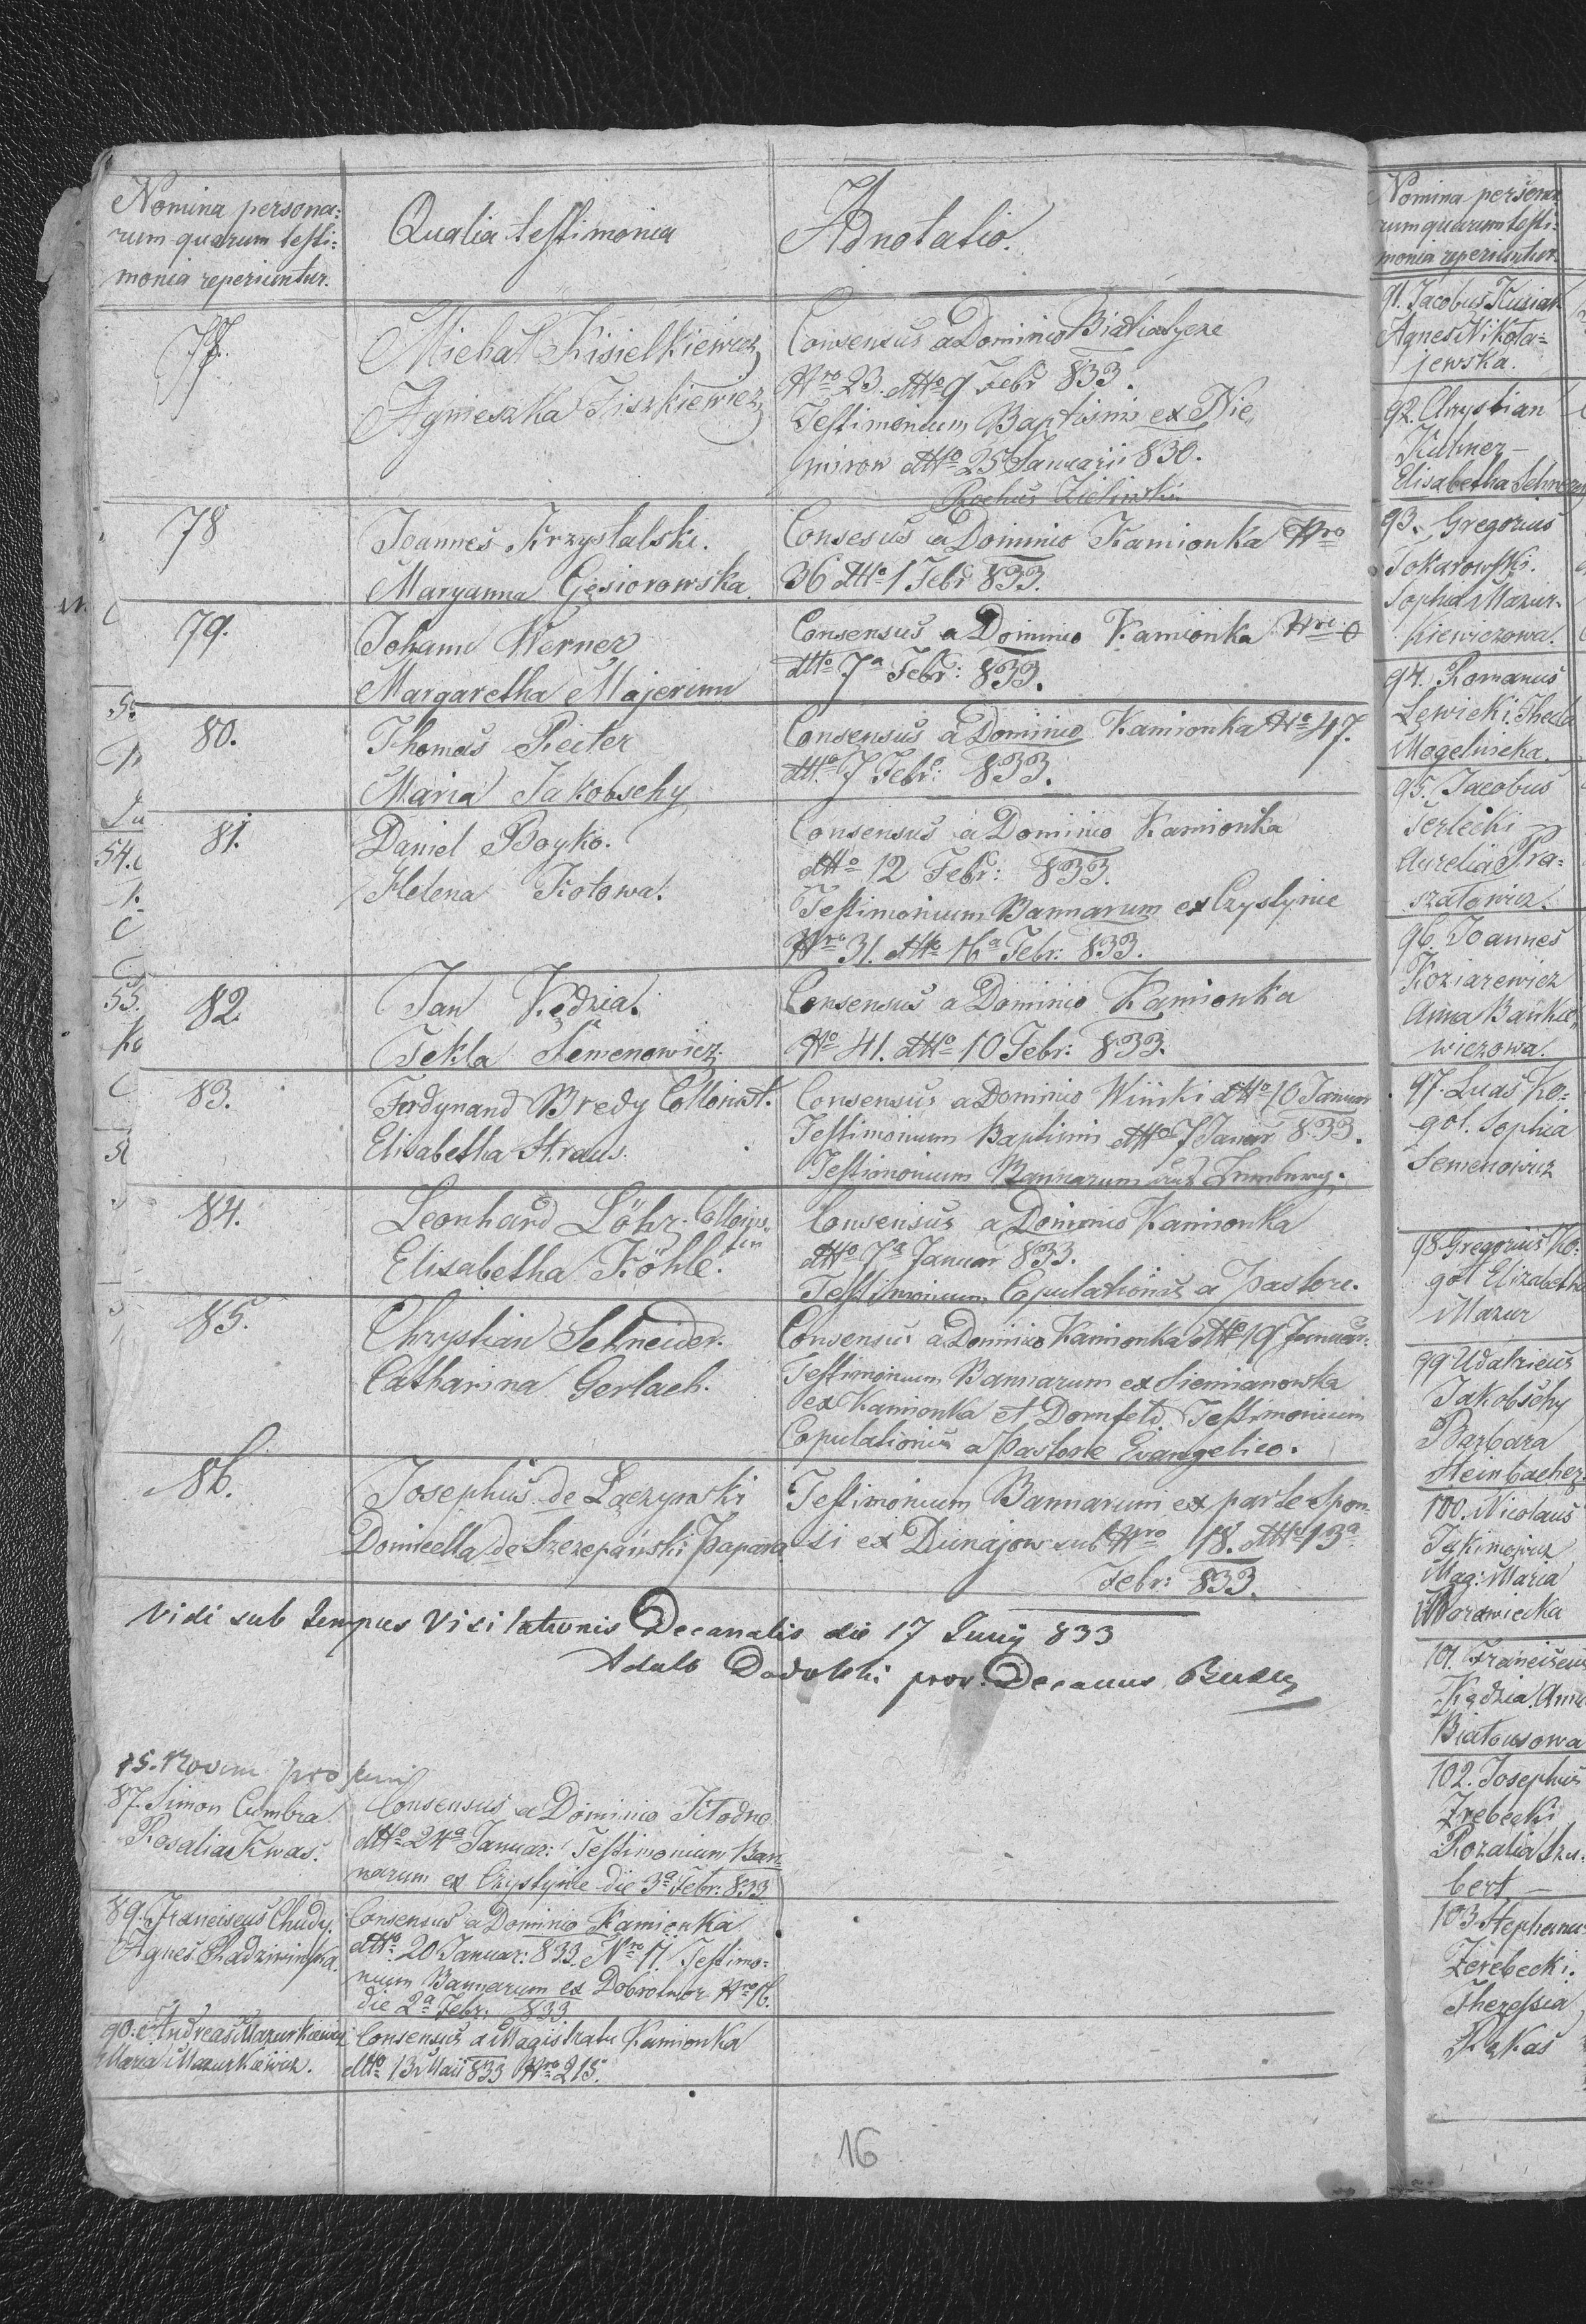 Nomina persona:
rum quarum testi:
monia reperiuntur.
Qualia testimonia
Adnotatio.
77.
Michał Kisielkiewicz
Agnieszka Fiszkiewicz
Consensus a Dominio
Nro 23. ddto 9 Febr 833.
Testimonium Baptismi ex Nie
mirow ddto 25 Januarii 830.
Rochus Zielinski
78
Joannes Krzystalski.
Maryanna Gęsiorowska.
Consesus a Dominio Kamionka Nro
36 ddto 1 Febr 833.
79.
Johann Werner
Margaretha Majerinn
Consensus a Dominio Kamionka Nro 0
ddto 7a Febr: 833.
80.
Thomas Reiter
Maria Jakobschy
Consensus a Dominio Kamionka No 47.
ddto 7 Febr: 833.
81.
Daniel Boyko.
Helena Kotowa.
Consensus a Dominio Kamionka
ddto 12 Febr: 833.
Testimonium Bannarum ex Czystynie
Nro 31. ddto 16a Febr: 833.
82.
Jan Kędzia.
Tekla Semenowicz.
Consensus a Dominio Kamionka
No 41. ddto 10 Febr: 833.
83.
Ferdynand Bredy Collonist.
Elisabetha Straus.
Consensus a Dominio ddto 10 Januar
Testimonium Baptismi ddto 7 Januar 833.
Testimonium Bannarum
84.
Leonhard Löhr.
Elisabetha Köhle.
Consensus a Dominio Kamionka
ddto 7a Januar 833.
Testimonium Copulationis a Pastore.
85.
Chrystian Schneider.
Catharina Gerlach.
Consensus a Dominio Kamionka ddto 19 Januar.
Testimonium Bannarum ex Siemianowka
ex Kamionka et Dornfeld. Testimonium
Copulationis a Pastore Evangelico.
86.
Josephus de Łączynski
Domicella de Szczepański Papara
Testimonium Bannarum ex parte Spon-
si ex Dunajow sub Nro 18. ddto 13a
Febr: 833.
Vidi sub tempus Visitationis Decanalis die 17 Junij 833
Adalb Dadolski prov. Decanus Buscen
15. Novem
87. Simon Cumbra
Rosalia Kwas.
Consensus a Dominio Kłodno
ddto 24a Januar: Testimonium Ban-
narum ex Czystynie die 3a Febr: 833
89. Franciscus Chudy.
Agnes Radziwinska.
Consensus a Dominio Kamionka
ddto 20 Januar: 833. Nro 17. Testimo-
nium Bannarum ex Dobrotwor Nro 16.
die 2a Febr. 833
90. Andreas Mazurkiewicz
Maria Mazurkiewicz.
Consensus a Magistratu Kamionka
ddto 13 Maii 833 Nro 215.
16
Nomina persona
rum quarum testi:
monia reperiuntur.
91. Jacobus Kusiak
Agnes Nikoła-
jewska.
92. Chrystian
Kuhner -
Elisabetha
93. Gregorius
Tokarowski.
Sophia Mazur-
kiewiczowa.
94. Romanus
Lewicki. Thecla
Mogelnicka.
95. Jacobus
Terlecki
Aurelia Pra-
szałowicz.
96. Joannes
Koziarewicz
Anna Bańkie
wiczowa.
97. Lucas Ko-
goł. Sophia
Semenowicz
98. Gregorius Ko-
goł Elizabetha
Mazur
99 Udalricus
Jakobschy
Barbara
Steinbacher
100. Nicolaus
Jakimowicz
Mag: Maria
Morawiecka
101. Franciscus
Kędzia. Anna
Białousowa
102. Josephus
Zrebecki
Rozalia Szu-
bert -
103 Stephanus
Zerebecki.
Theressia
Rekas